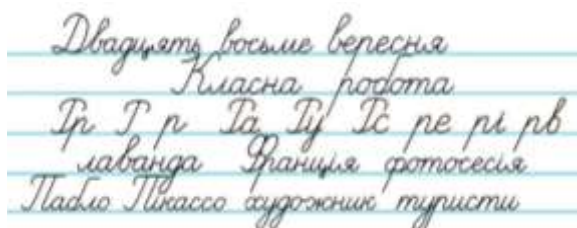 Двадцять восьме вересня
Класна робота
Рр Р р Ра Ру Рс ре рі рв
лаванда Франція фотосесія
Пабло Пікассо художник туристи